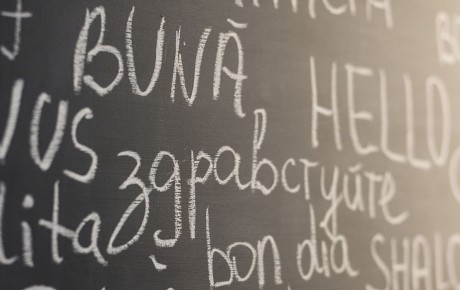 BUNĂ HELLO
VUS здравствуйте
lita bon dia SHALO